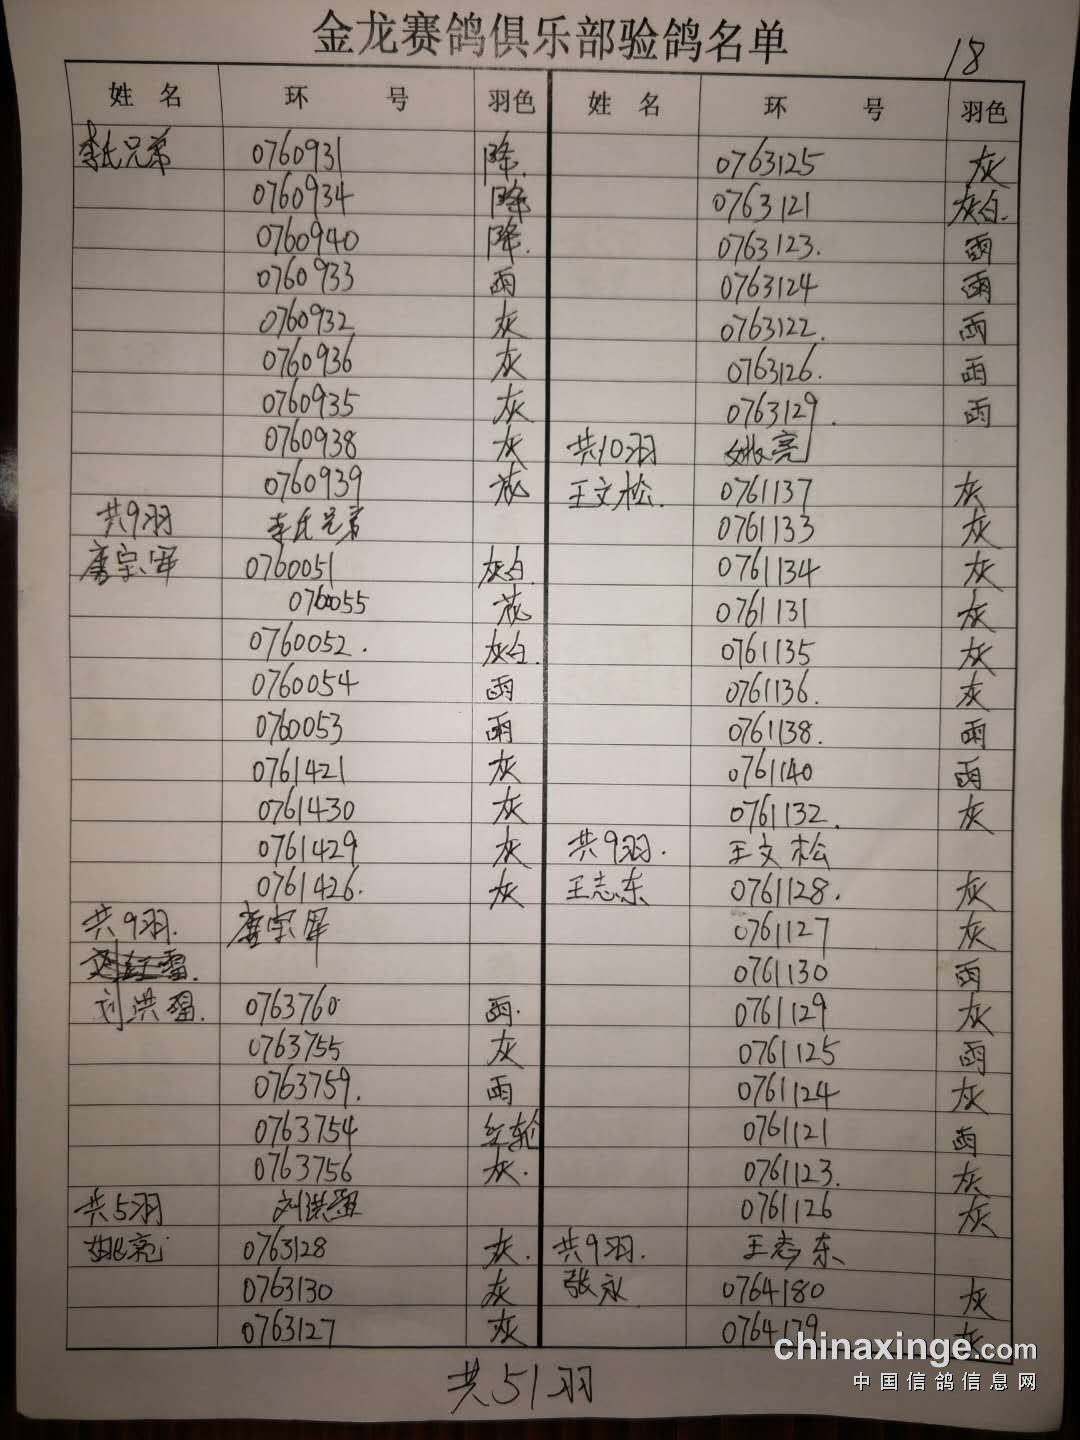 金龙赛鸽俱乐部验鸽名单
18
姓 名 环 号 羽色 姓 名 环 号 羽色
李氏兄弟 0760931 降.
0760934 降
0760940 降.
0760933 雨
0760932 灰
0760936 灰
0760935 灰
0760938 灰
0760939 花
共9羽 李氏兄弟
唐宗军 0760051 灰白
0760055 花
0760052. 灰白.
0760054 雨
0760053 雨
0761421 灰
0761430 灰
0761429 灰
0761426. 灰
共9羽. 唐宗军
刘洪 0763760 雨.
0763755 灰
0763759. 雨
0763754 红轮
0763756 灰.
共5羽 刘洪
姚亮 0763128 灰.
0763130 灰
0763127 灰
0763125 灰
0763121 灰白.
0763123. 雨
0763124 雨
0763122. 雨
0763126. 雨
0763129. 雨
共10羽 姚亮
王文松. 0761137 灰
0761133 灰
0761134 灰
0761131 灰
0761135 灰
0761136. 灰
0761138. 雨
0761140 雨
0761132. 灰
共9羽. 王文松
王志东 0761128. 灰
0761127 灰
0761130 雨
0761129 灰
0761125 雨
0761124 灰
0761121 雨
0761123. 灰
0761126 灰
共9羽. 王志东
张永 0764180 灰
0764179 灰
共51羽
chinaxinge.com
中国信鸽信息网